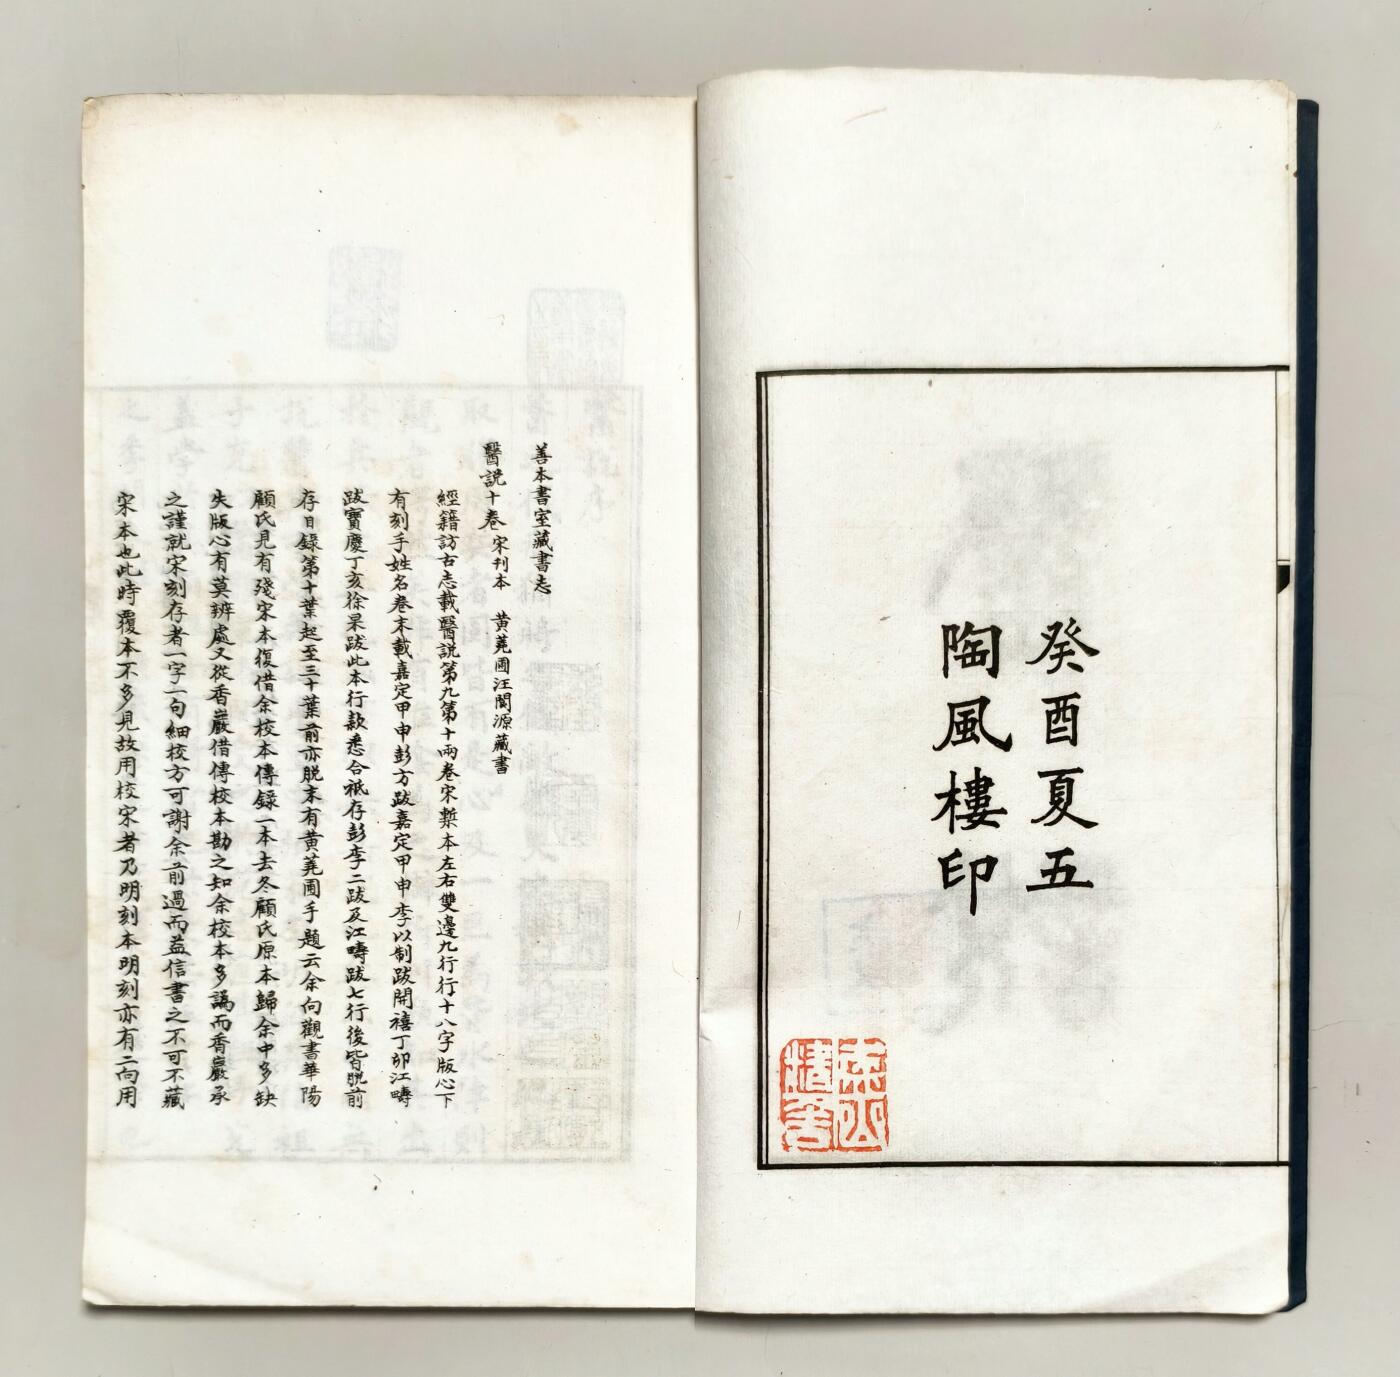 癸酉夏五
陶風樓印
善本書室藏書志
醫説十卷 宋刊本 黄蕘圃汪閬源藏書
經籍訪古志載醫説第九第十兩卷宋槧本左右雙邊九行行十八字版心下
有刻手姓名卷末載嘉定甲申彭方跋嘉定甲申李以制跋開禧丁卯江疇
跋寶慶丁亥徐杲跋此本行款悉合祗存彭李二跋及江疇跋七行後皆脱前
存目錄第十葉起至三十葉前亦脱末有黄蕘圃手題云余向觀書華陽
顧氏見有殘宋本復借余校本傳錄一本去冬顧氏原本歸余中多缺
失版心有莫辨處又從香巖借傳校本勘之知余校本多譌而香巖承
之謹就宋刻存者一字一句細校方可謝余前過而益信書之不可不藏
宋本也此時覆本不多見故用校宋者乃明刻本明刻亦有二向用